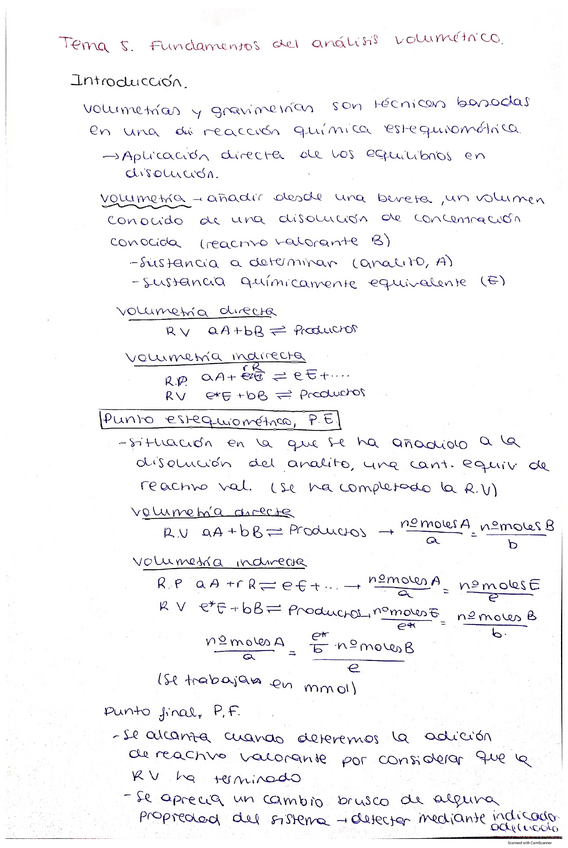 Tema 5. Fundamentos del análisis volumétrico.
Introducción.
volumetrías y gravimetrías son técnicas basadas
en una di reacción química estequiométrica
→Aplicación directa de los equilibrios en
disolución.
volumetría → añadir desde una bureta, un volumen
conocido de una disolución de concentración
conocida (reactivo valorante B)
-Sustancia a determinar (analito, A)
-Sustancia químicamente equivalente (E)
volumetría directa
RV aA+bB ⇌ Productos
volumetría indirecta
R.P. aA+ rR ⇌ eE+....
RV e*E+bB ⇌ Productos
Punto estequiométrico, P.E
-situación en la que se ha añadido a la
disolución del analito, una cant. equiv de
reactivo val. (se ha completado la R.V)
volumetría directa
R.V aA+bB ⇌ Productos → nºmolesA/a = nºmolesB/b
volumetría indirecta
R.P aA+rR ⇌ eE+... → nºmolesA/a = nºmolesE/e
RV e*E+bB ⇌ Productos, nºmolesE/e* = nºmolesB/b.
nºmolesA/a = e*/b · nºmolesB/e
(Se trabaja en mmol)
Punto final, P.F.
-Se alcanza cuando detenemos la adición
de reactivo valorante por considerar que la
RV ha terminado
-Se aprecia un cambio brusco de alguna
propiedad del sistema → detectar mediante indicador
adecuado
Scanned with CamScanner